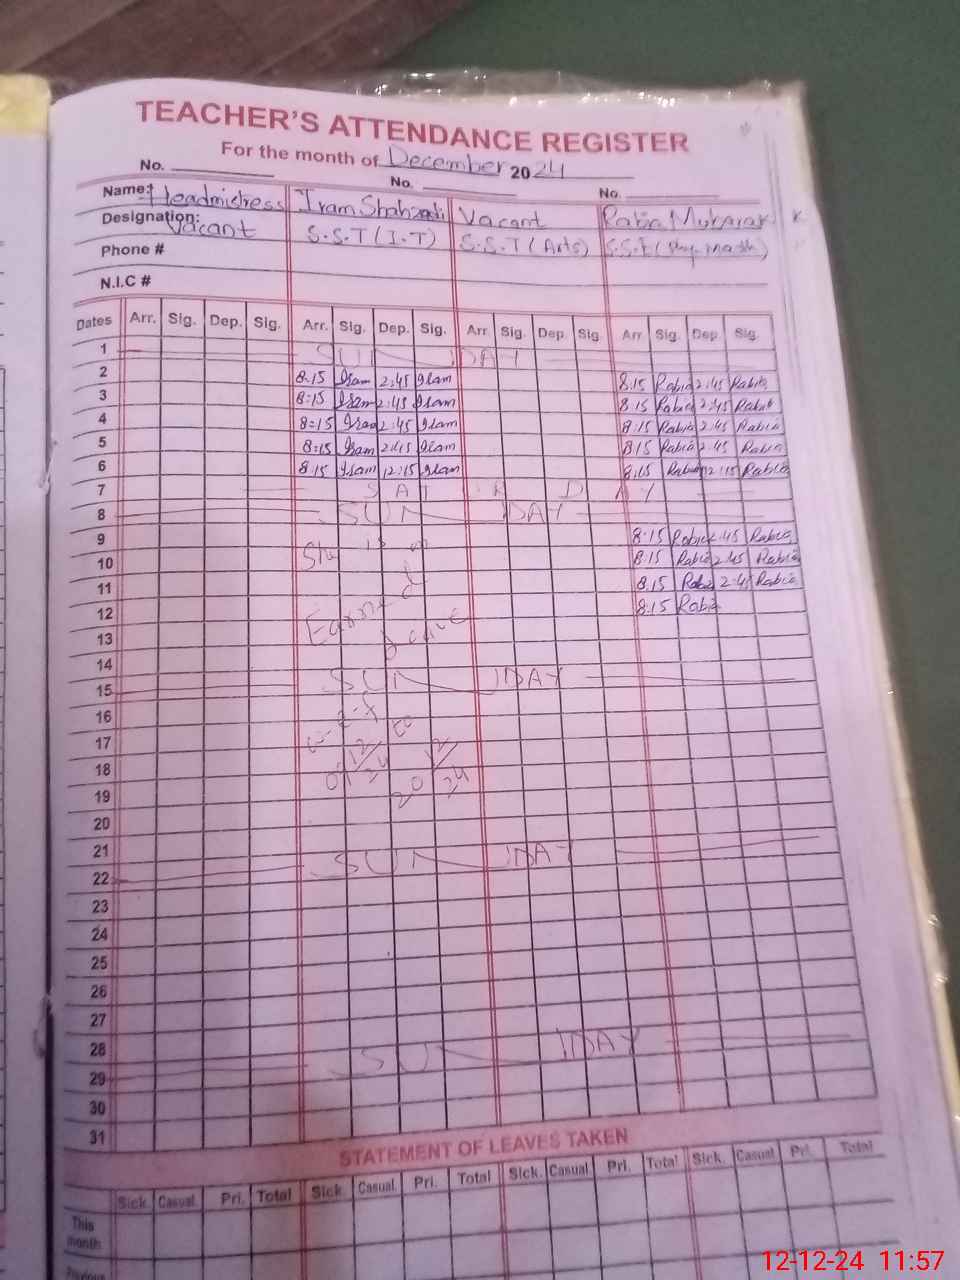 TEACHER'S ATTENDANCE REGISTER
For the month of December 2024
No. No. No.
Name: Headmistress Iram Shahzadi Vacant Rabia Mubarak
Designation: Vacant S.S.T (I.T) S.S.T (Arts) S.S.E (Phy. Math)
Phone #
N.I.C #
Dates Arr. Sig. Dep. Sig. Arr. Sig. Dep. Sig. Arr. Sig. Dep. Sig. Arr. Sig. Dep. Sig.
1 SUNDAY
2 8:15 Iram 2:45 Iram 8:15 Rabia 2:45 Rabia
3 8:15 Iram 2:45 Iram 8:15 Rabia 2:45 Rabia
4 8:15 Iram 2:45 Iram 8:15 Rabia 2:45 Rabia
5 8:15 Iram 2:45 Iram 8:15 Rabia 2:45 Rabia
6 8:15 Iram 12:15 Iram 8:15 Rabia 12:15 Rabia
7 SATURDAY
8 SUNDAY
9 8:15 Rabia 2:45 Rabia
10 She is on 8:15 Rabia 2:45 Rabia
11 8:15 Rabia 2:45 Rabia
12 Earned 8:15 Rabia
13 Leave
14
15 SUNDAY
16
17 w.e.f to
18 12/24 12/24
19 20
20
21
22 SUNDAY
23
24
25
26
27
28
29 SUNDAY
30
31
STATEMENT OF LEAVES TAKEN
Sick. Casual. Pri. Total Sick. Casual. Pri. Total Sick. Casual Pri. Total Sick. Casual Pri. Total
This month
Previous
12-12-24 11:57